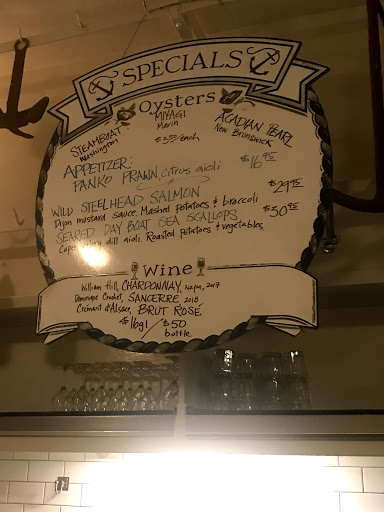 SPECIALS
Oysters
STEAMBOAT
Washington
MIYAGI
Marin
$3.75/each
ACADIAN PEARL
New Brunswick
APPETIZER:
PANKO PRAWN, citrus aioli $16.95
WILD STEELHEAD SALMON $29.95
Dijon mustard sauce, Mashed Potatoes & broccoli
SEARED DAY BOAT SEA SCALLOPS $30.95
dill aioli, Roasted Potatoes & vegetables
Wine
William Hill, CHARDONNAY, Napa, 2017
Dominique Crochet, SANCERRE 2018
Crémant d'Alsace, BRUT ROSÉ
$16gl/$50
bottle